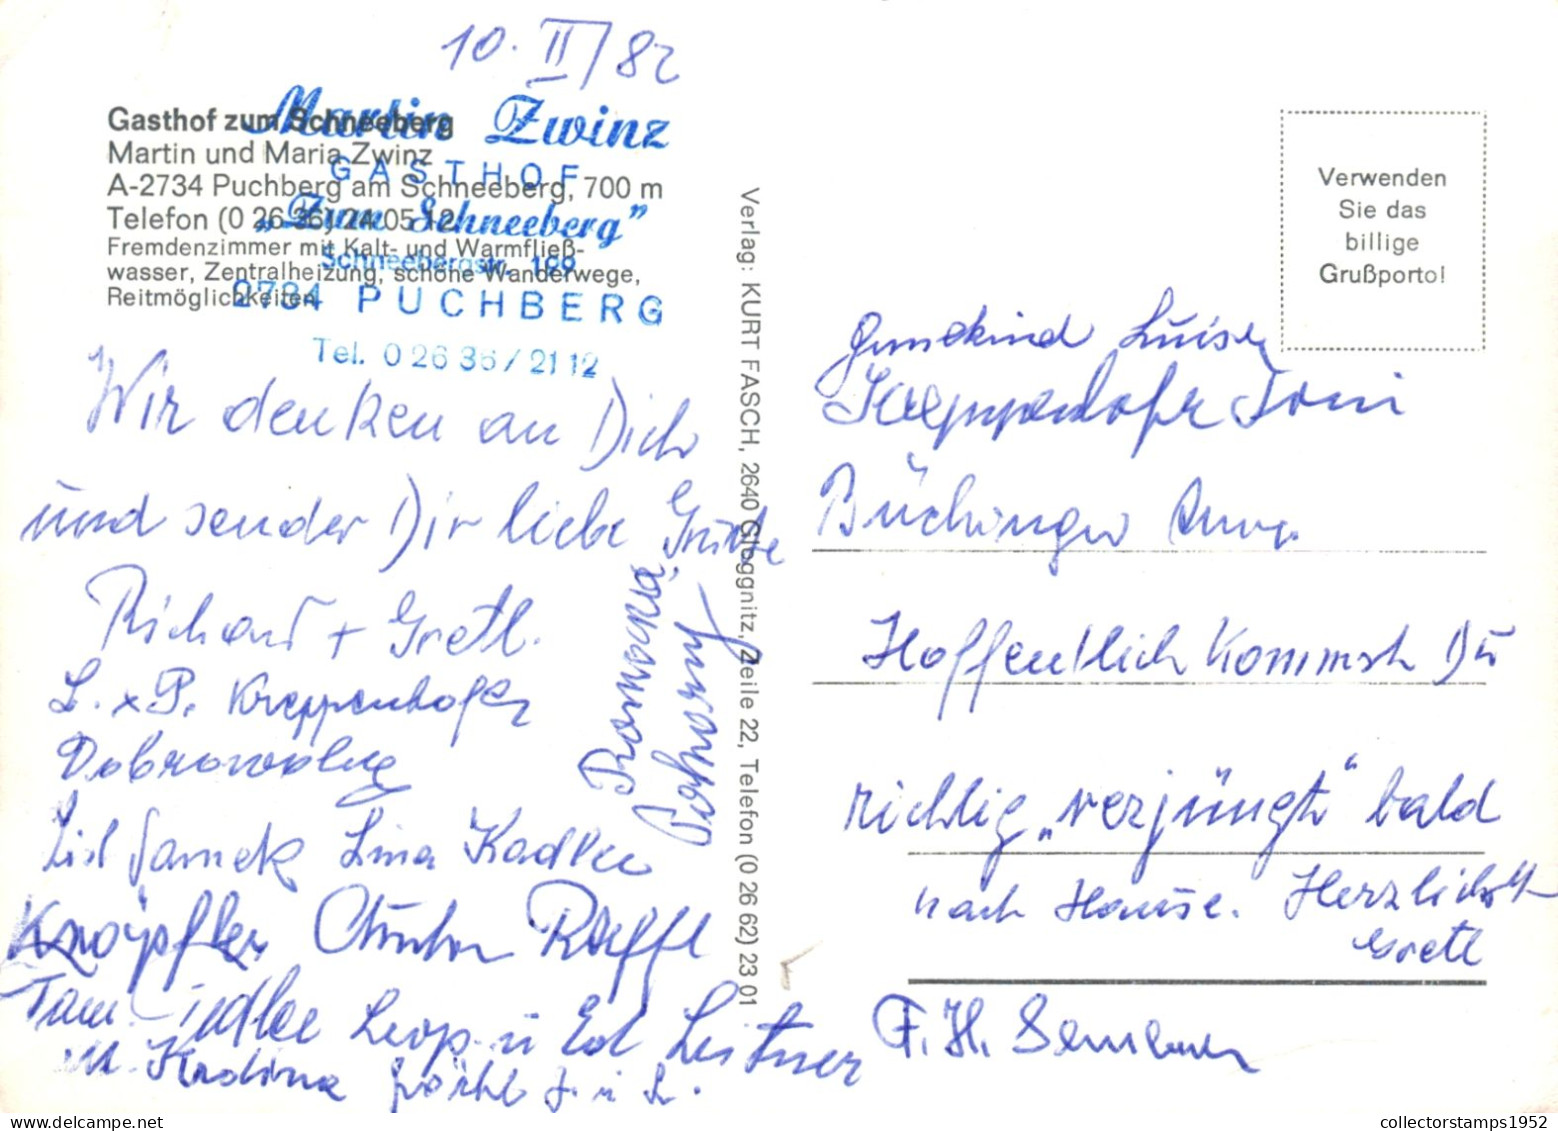 10. II/82
Gasthof zum Schneeberg
Martin und Maria Zwinz
A-2734 Puchberg am Schneeberg, 700 m
Telefon (0 26 36) 24 05 12
Fremdenzimmer mit Kalt- und Warmfließ-
wasser, Zentralheizung, schöne Wanderwege,
Reitmöglichkeiten
Martin Zwinz
GASTHOF
„Zum Schneeberg”
Schneebergstr.
2734 PUCHBERG
Tel. 0 26 36 / 21 12
Wir denken an Dich
und senden Dir liebe Grüße
Richard + Gretl.
L. + P. Kreppenhofer
Lina Kadlec
Knöpfler
Leop. u Ed Leitner
Verlag: KURT FASCH, 2640 Gloggnitz, Zeile 22, Telefon (0 26 62) 23 01
Verwenden
Sie das
billige
Grußporto!
Luise
Toni
Büchinger
Hoffentlich kommst Du
richtig „verjüngt“ bald
nach Hause. Herzlichst
Gretl
F. H.
collectorstamps1952